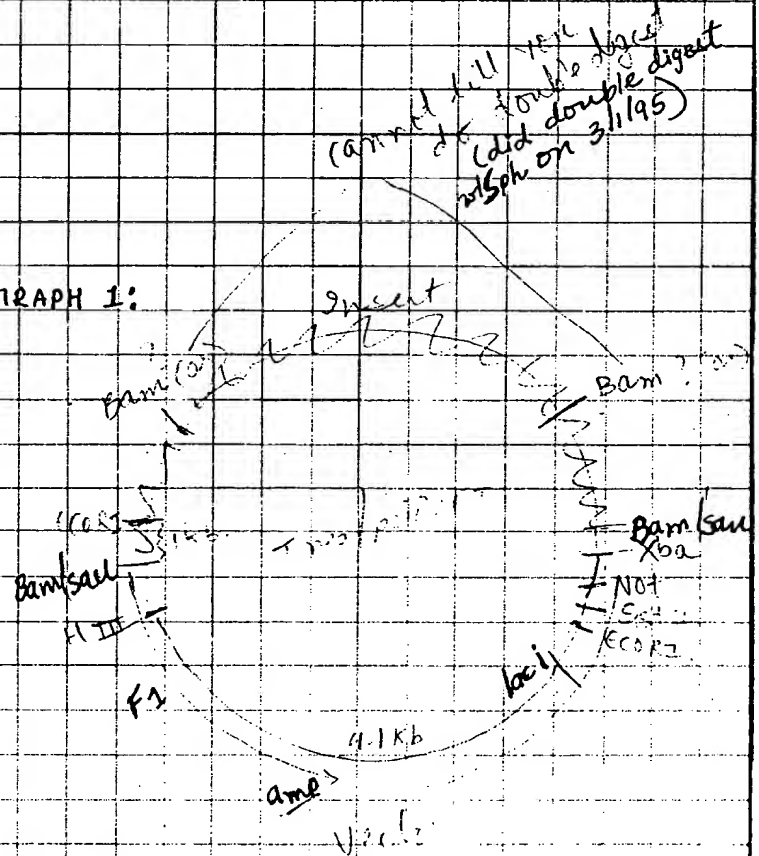 cannot till you
do double digest
(did double digest
w/Sph on 3/1/95)
GRAPH 1:
Insert
Bam (or)
?
Bam ? (or)
ECORI
Bam/sau
H III
Bam/sau
Xba
Not
ECORI
F1
lac i
4.1 Kb
amp